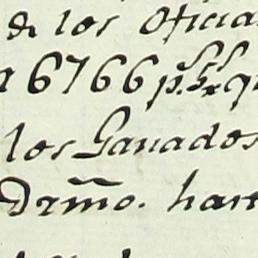 de los Oficia
6766 p.r q
los Ganados
Dr̃mo. hast